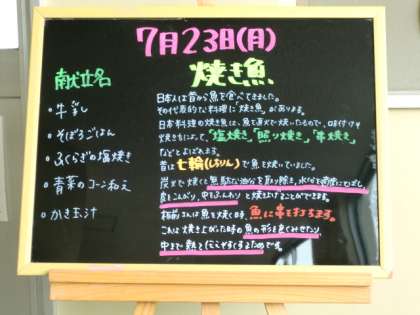 7月23日(月)
献立名
・牛乳
・そぼろごはん
・ふくらぎの塩焼き
・青菜のコーン和え
・かき玉汁
焼き魚
日本人は昔から魚を食べてきました。
その代表的な料理に「焼き魚」があります。
日本料理の焼き魚は、魚を直火で焼いたもので、味付けや
焼き方によって、「塩焼き」「照り焼き」「串焼き」
などとよばれます。
昔は七輪(しちりん)で魚を焼いていました。
炭火で焼くと無駄な油分を取り除き、水分を適度にとばし、
皮をこんがり、中をふんわりと焼き上げることができます。
板前さんは魚を焼く時、魚に串を打ちます。
これは焼き上がった時の魚の形を良くみせたり、
中まで熱を伝えやすくするためです。